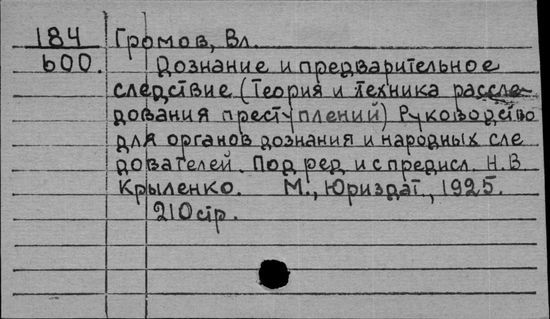 184 Громов, Вл.
600. Дознание и предварительное
следствие (Теория и техника рассле-
дования преступлений) Руководство
для органов дознания и народных сле
дователей. Под ред и с предисл. Н.В
Крыленко. М., Юриздат, 1925.
210 стр.